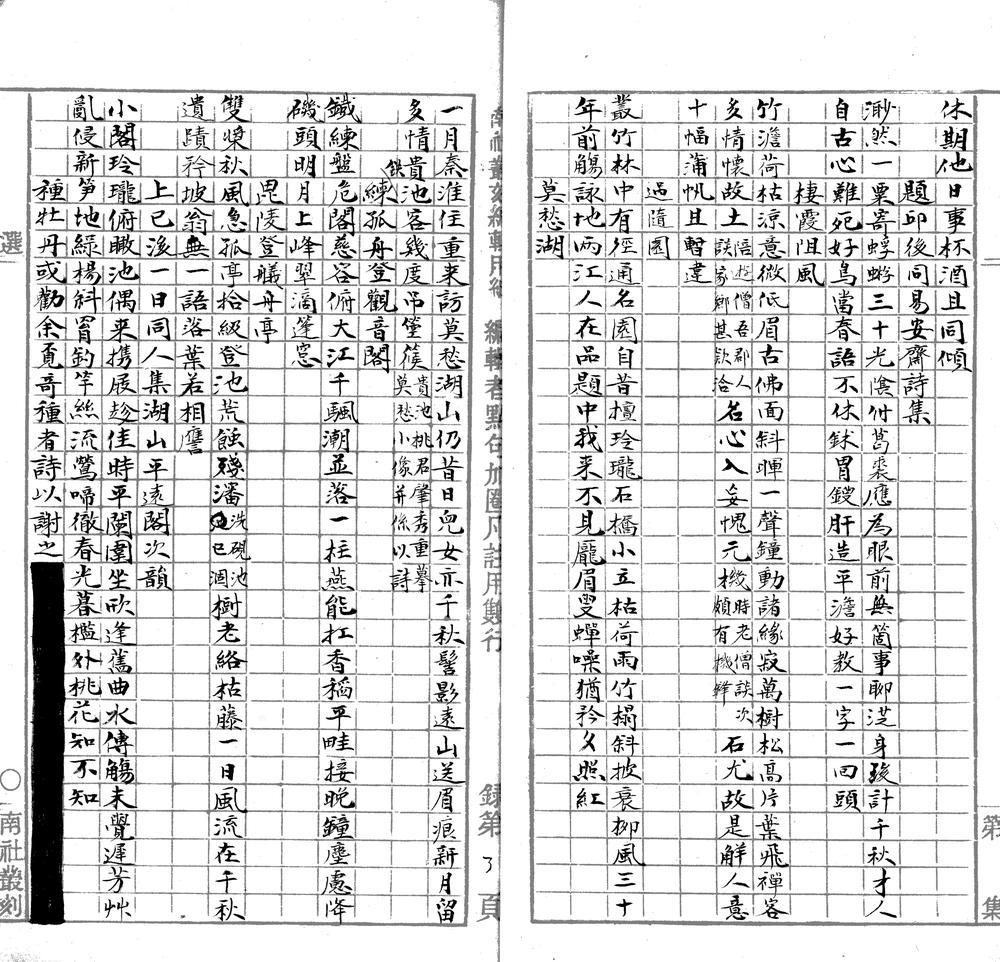 休期他日事杯酒且同傾
題邱後同易安齋詩集
渺然一粟寄蜉蝣三十光陰付葛裘應為眼前無箇事聊浸身後計千秋才人
自古心難死好鳥當春語不休鉥胃鏤肝造平澹好教一字一回頭
棲霞阻風
竹澹荷枯涼意微低眉古佛面斜暉一聲鐘動諸緣寂萬樹松高片葉飛禪客
多情懷故土陪遊僧吾郡人談家鄉甚款洽名心入妄愧元機時老僧談次頗有機鋒石尤故是解人意
十幅蒲帆且暫違
過隨園
叢竹林中有徑通名園自昔檀玲瓏石橋小立枯荷雨竹榻斜披衰柳風三十
年前觴詠地兩江人在品題中我來不見龐眉叟蟬噪猶矜夕照紅
莫愁湖
南社叢刻編輯用紙　編輯者點句加圈凡註用雙行　錄第3頁
一月秦淮住重來訪莫愁湖山仍昔日兒女亦千秋髻影遠山送眉痕新月留
多情貴池客幾度吊箜篌貴池桃君肇秀重摹莫愁小像并係以詩
鐵練孤舟登觀音閣
鐵練盤危閣慈容俯大江千颿潮並落一柱燕能扛香稻平畦接晚鐘塵慮降
磯頭明月上峰翠滴篷窓
毘陵登艤舟亭
雙槳秋風急孤亭拾級登池荒蝕殘瀋洗硯池已涸樹老絡枯藤一日風流在千秋
遺蹟矜坡翁無一語落葉若相譍
上巳後一日同人集湖山平遠閣次韻
小閣玲瓏俯瞰池偶來携屐趁佳時平闌圍坐欣逢舊曲水傳觴未覺遲芳艸
亂侵新笋地綠楊斜罥釣竿絲流鶯啼徹春光暮檻外桃花知不知
種牡丹或勸余覓奇種者詩以謝之
選
南社叢刻
第
集